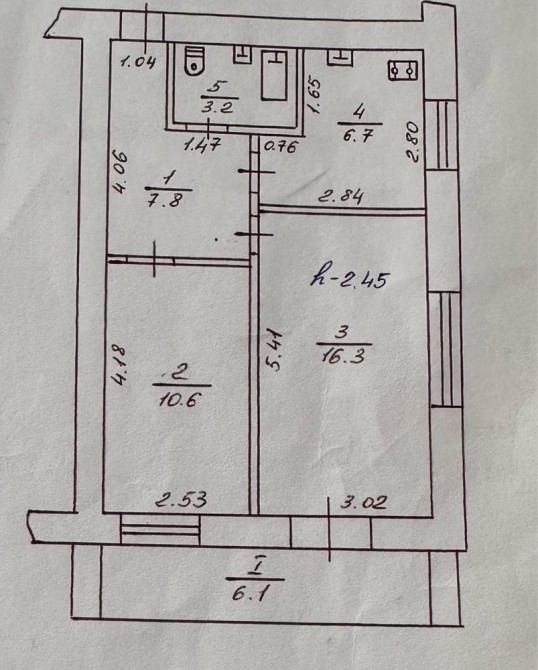 1.04
5
3.2
1.65
4
6.7
2.80
1.47
0.76
4.06
1
7.8
2.84
h-2.45
3
16.3
5.41
4.18
2
10.6
2.53
3.02
I
6.1